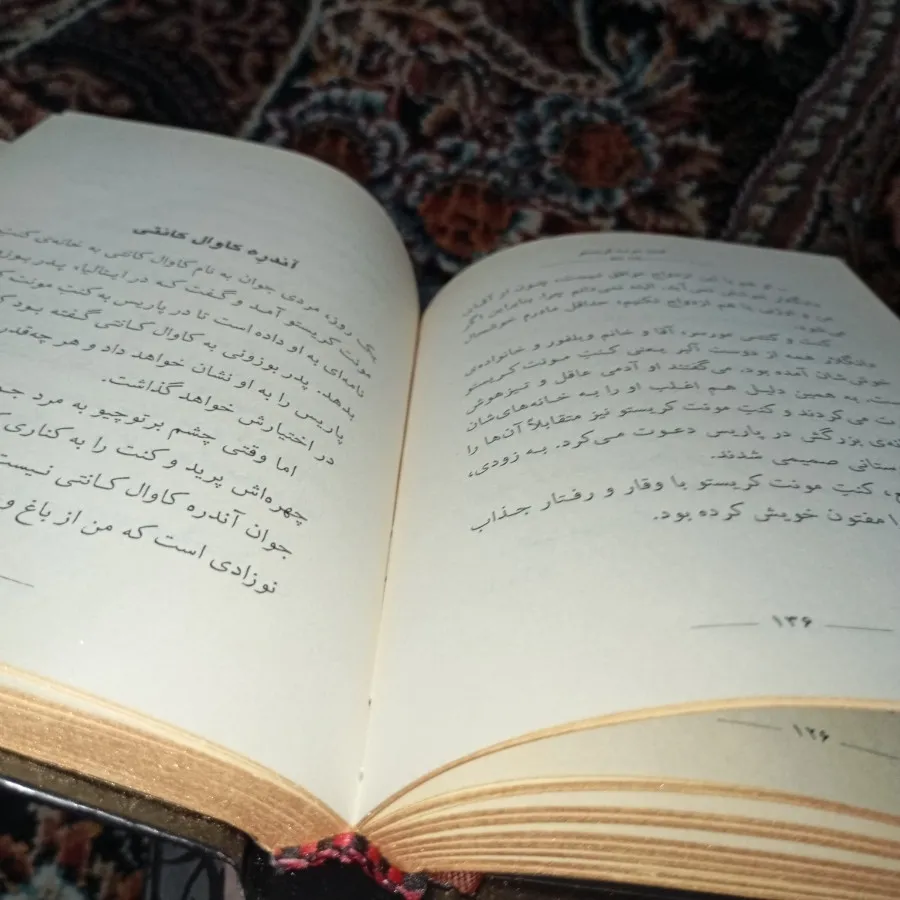 من و فرانز با هم ازدواج نکنیم، حداقل مادرم خوشحال
می‌شود.
کنت و کنسی مورس، آقا و خانم ویلفور و خانواده‌ی
دانگلار همه از دوست آلبر یعنی کنت مونت کریستو
خوش‌شان آمده بود. می‌گفتند او آدمی عاقل و تیزهوش
است. به همین دلیل هم اغلب او را به خانه‌های‌شان
می‌کردند و کنت مونت کریستو نیز متقابلاً آن‌ها را
بزرگش در پاریس دعوت می‌کرد. به زودی،
ستانی صمیمی شدند.
کنت مونت کریستو با وقار و رفتار جذاب
مفتون خویش کرده بود.
۱۳۶
۱۲۶
آندره کاوال کانتی
یک روز، مردی جوان به نام کاوال کانتی به خانه‌ی کنت
مونت کریستو آمد و گفت که در ایتالیا، پدر بوزونی
نامه‌ای به او داده است تا در پاریس به کنت مونت
بدهد. پدر بوزونی به کاوال کانتی گفته بود
پاریس را به او نشان خواهد داد و هر چه‌قدر
در اختیارش خواهد گذاشت.
اما وقتی چشم برتوچیو به مرد
چهره‌اش پرید و کنت را به کناری
جوان آندره کاوال کانتی نیست
نوزادی است که من از باغ و